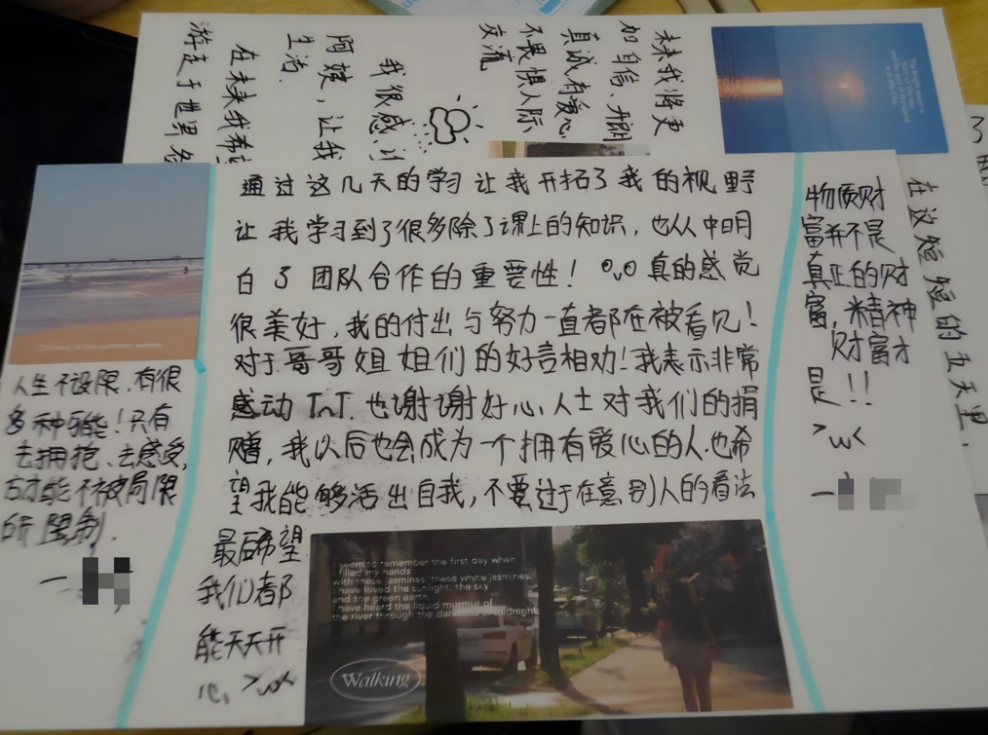 未来我将更
加自信、开朗
真诚有爱心
不畏惧人际
交流
我很感
阿姨，让我
生活.
在未来我希
游走于世界
通过这几天的学习让我开拓了我的视野
让我学习到了很多除了课上的知识，也从中明
白了团队合作的重要性！0v0真的感觉
很美好，我的付出与努力一直都在被看见！
对于哥哥姐姐们的好言相劝！我表示非常
感动TnT.也谢谢好心人士对我们的捐
赠，我以后也会成为一个拥有爱心的人.也希
望我能够活出自我，不要过于在意别人的看法
最后希望
我们都
能天天开
心 >w<
人生不设限.有很
多种可能！只有
去拥抱、去感受，
才能不被局限
所限制.
物质财
富并不是
真正的财
富，精神
财富才
是！！
>w<
在这短短的五天里，
I seem to remember the first day when
I filled my hands
with these jasmines, these white jasmines.
I have loved the sunlight, the sky
and the green earth.
I have heard the liquid murmur of
the river through the darkness of midnight
Walking